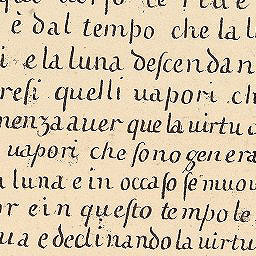 è dal tempo che la l
i e la luna deſcendan
reſi quelli uapori ch
nenza auer que la uirtu
uapori che ſono genera
luna e in occaſo ſe muou
or e in queſto tempo le
ua e declinando la uirtu